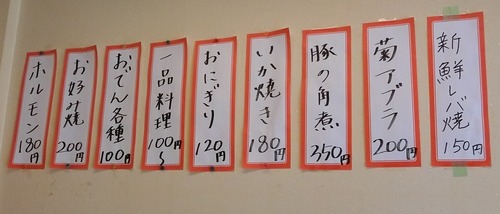 新鮮レバ焼 150円
菊アブラ 200円
豚の角煮 350円
いか焼き 180円
おにぎり 120円
一品料理 100円〜
おでん各種 100円
お好み焼 200円
ホルモン 180円